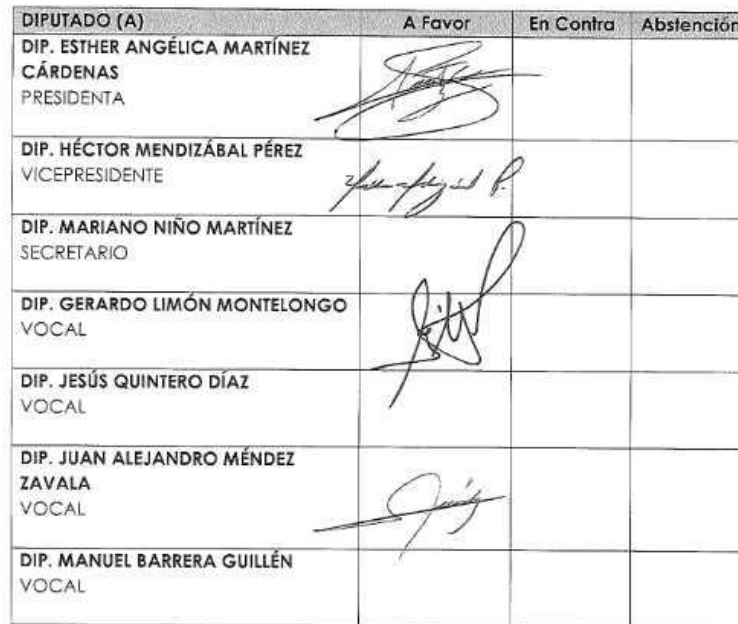 DIPUTADO (A) A Favor En Contra Abstención
DIP. ESTHER ANGÉLICA MARTÍNEZ
CÁRDENAS
PRESIDENTA
DIP. HÉCTOR MENDIZÁBAL PÉREZ
VICEPRESIDENTE
DIP. MARIANO NIÑO MARTÍNEZ
SECRETARIO
DIP. GERARDO LIMÓN MONTELONGO
VOCAL
DIP. JESÚS QUINTERO DÍAZ
VOCAL
DIP. JUAN ALEJANDRO MÉNDEZ
ZAVALA
VOCAL
DIP. MANUEL BARRERA GUILLÉN
VOCAL